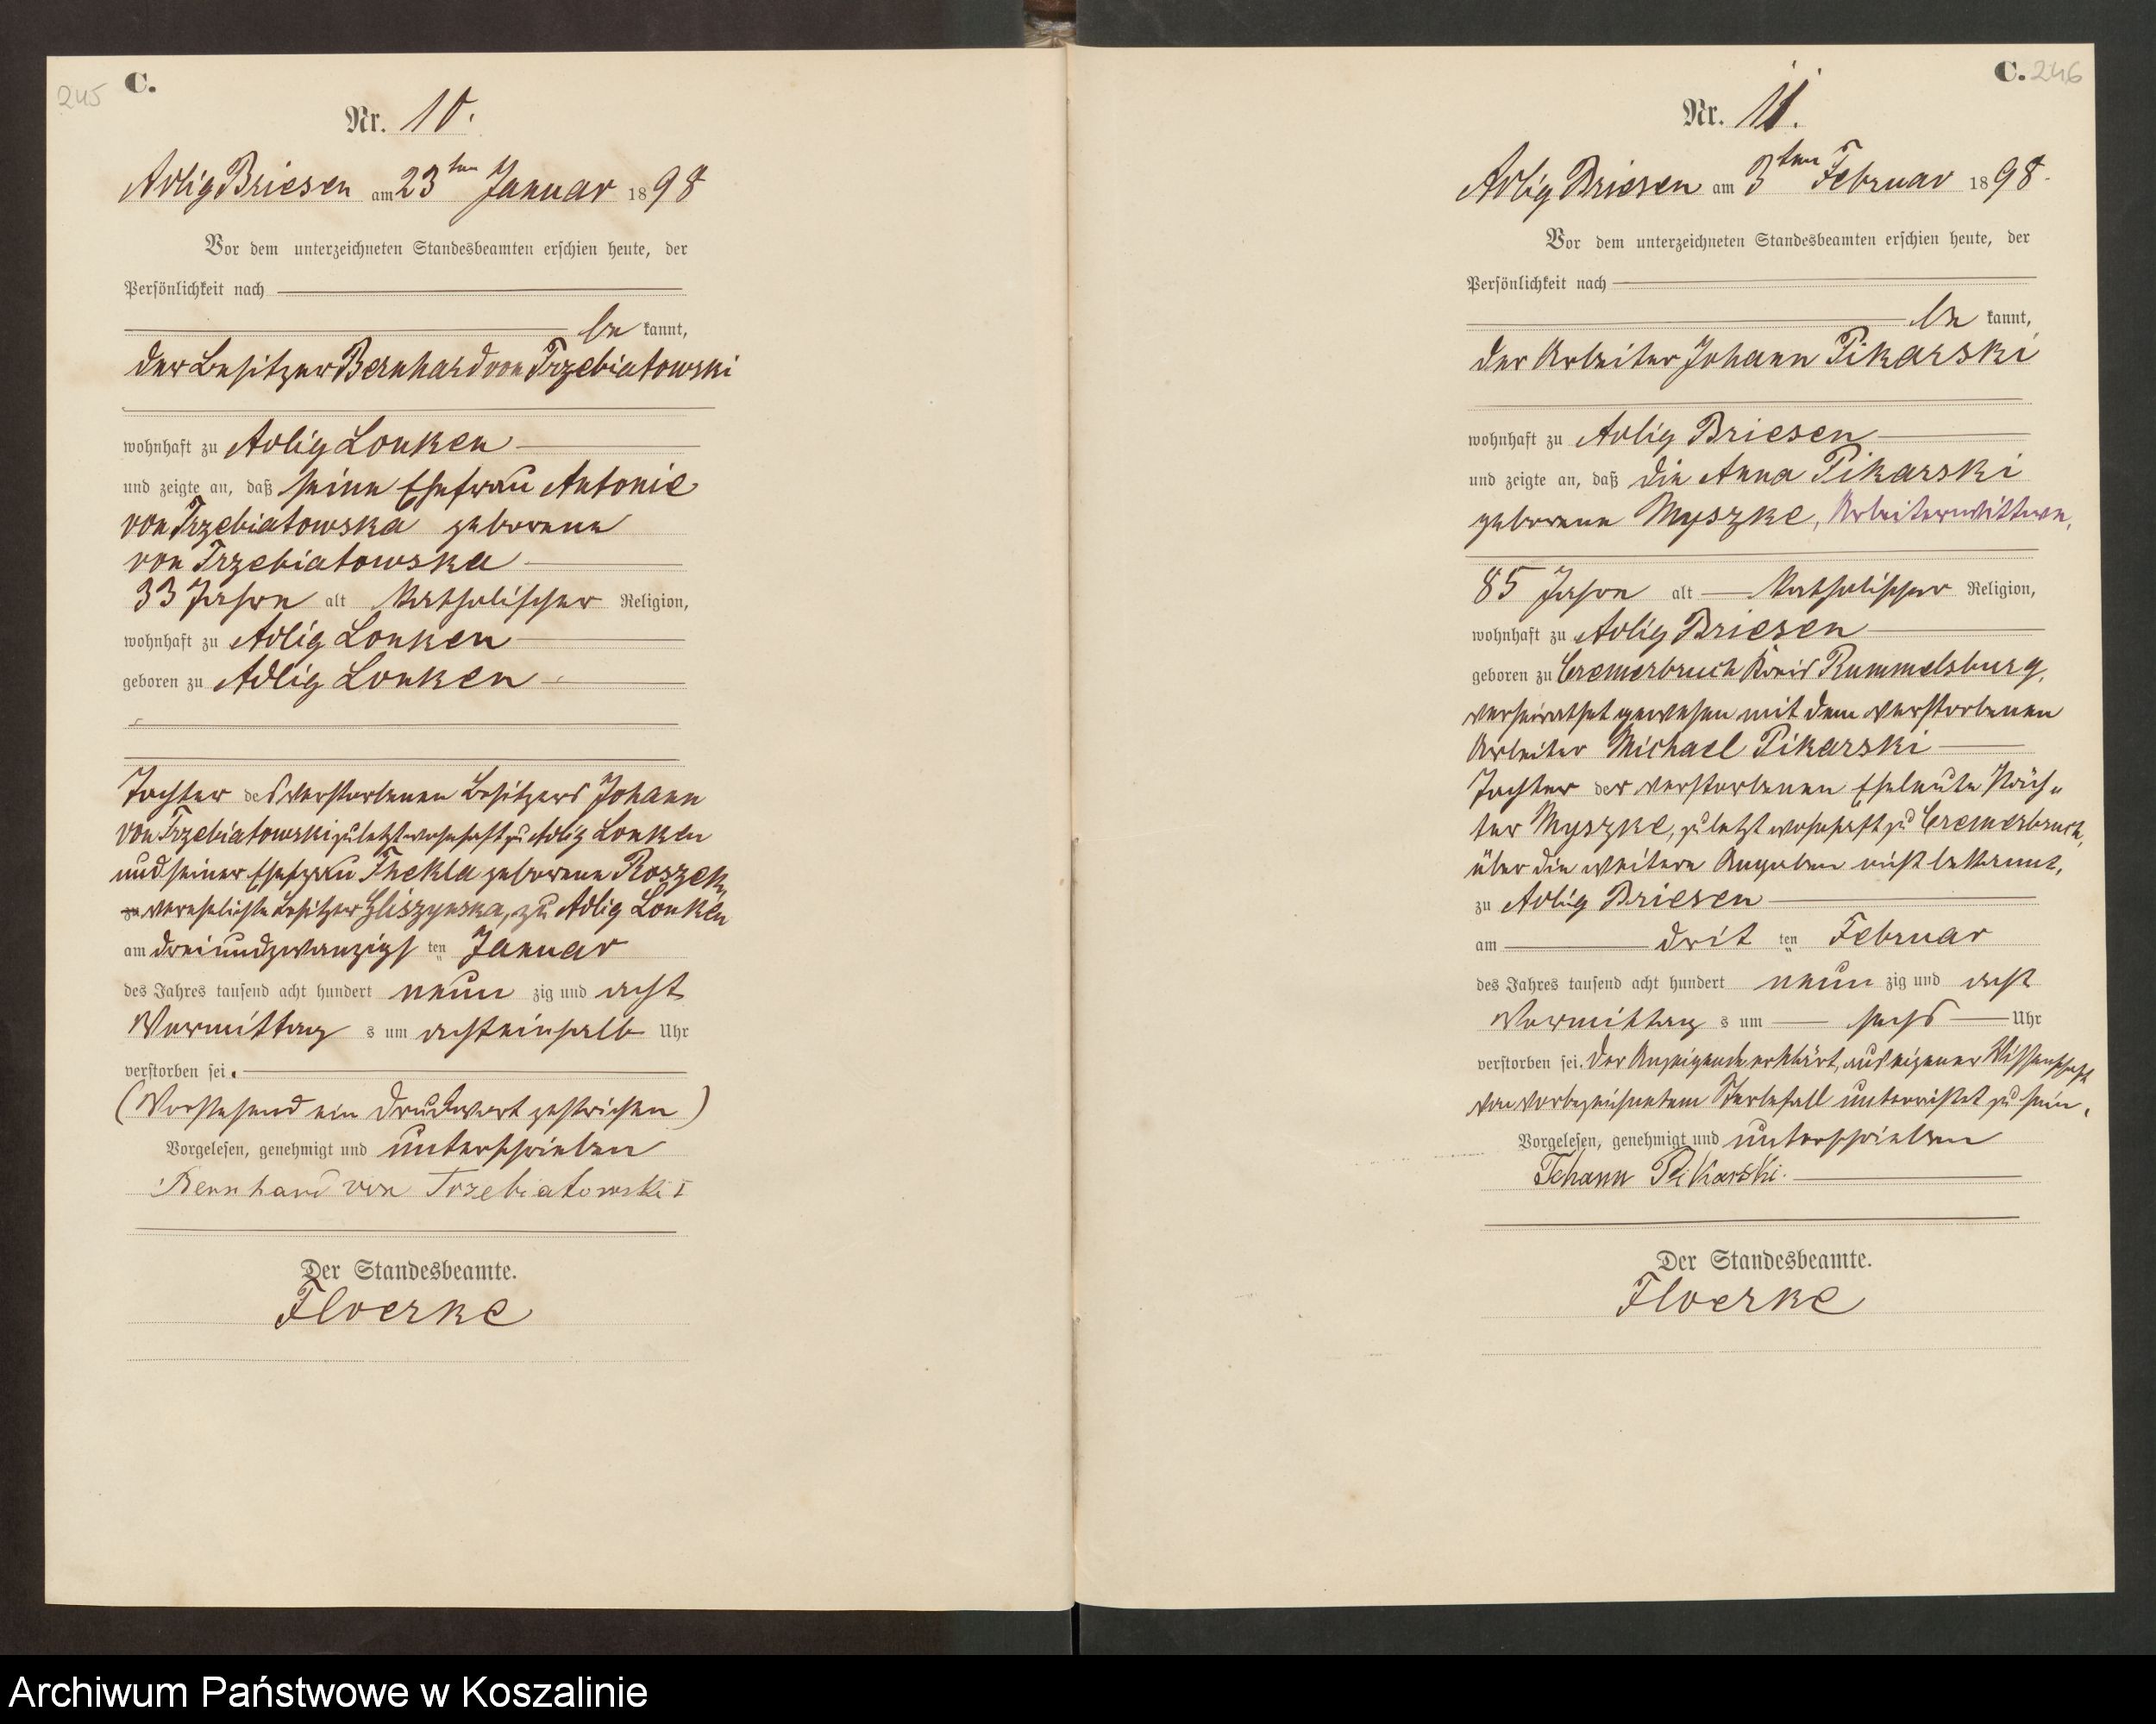 245
C.
Nr. 10.
Adlig Briesen am 23ten Januar 1898
Vor dem unterzeichneten Standesbeamten erschien heute, der
Persönlichkeit nach
be kannt,
der Besitzer Bernhard von Trzebiatowski
wohnhaft zu Adlig Lonken
und zeigte an, daß seine Ehefrau Antonie
von Trzebiatowska geborene
von Trzebiatowska
33 Jahre alt katholischer Religion,
wohnhaft zu Adlig Lonken
geboren zu Adlig Lonken
Tochter des verstorbenen Besitzers Johann
von Trzebiatowski zuletzt wohnhaft zu Adlig Lonken
und seiner Ehefrau Thekla geborene Roszek,
zu verehelichte Besitzer Gliszynska, zu Adlig Lonken
am dreiundzwanzigs ten Januar
des Jahres tausend acht hundert neun zig und acht
Vormittag s um achteinhalb Uhr
verstorben sei.
(Vorstehend ein Druckwort gestrichen)
Vorgelesen, genehmigt und unterschrieben
Bernhard von Trzebiatowski I
Der Standesbeamte.
Floerke
C. 246
Nr. 11.
Adlig Briesen am 3ten Februar 1898.
Vor dem unterzeichneten Standesbeamten erschien heute, der
Persönlichkeit nach
be kannt,
der Arbeiter Johann Pikarski
wohnhaft zu Adlig Briesen
und zeigte an, daß die Anna Pikarski
geborene Myszke, Arbeiterwittwe,
85 Jahre alt katholischer Religion,
wohnhaft zu Adlig Briesen
geboren zu Cremerbruch Kreis Rummelsburg,
verheirathet gewesen mit dem verstorbenen
Arbeiter Michael Pikarski
Tochter der verstorbenen Eheleute Päch-
ter Myszke, zuletzt wohnhaft zu Cremerbruch,
über die weitere Angaben nicht bekannt,
zu Adlig Briesen
am drit ten Februar
des Jahres tausend acht hundert neun zig und acht
Vormittag s um sechs Uhr
verstorben sei. Der Anzeigende erklärt, aus eigener Wissenschaft
von vorbezeichnetem Sterbefall unterrichtet zu sein,
Vorgelesen, genehmigt und unterschrieben
Johann Pikarski.
Der Standesbeamte.
Floerke
Archiwum Państwowe w Koszalinie